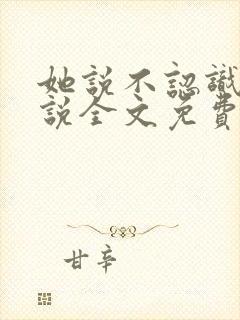 她說不認識
說全文免費
甘辛